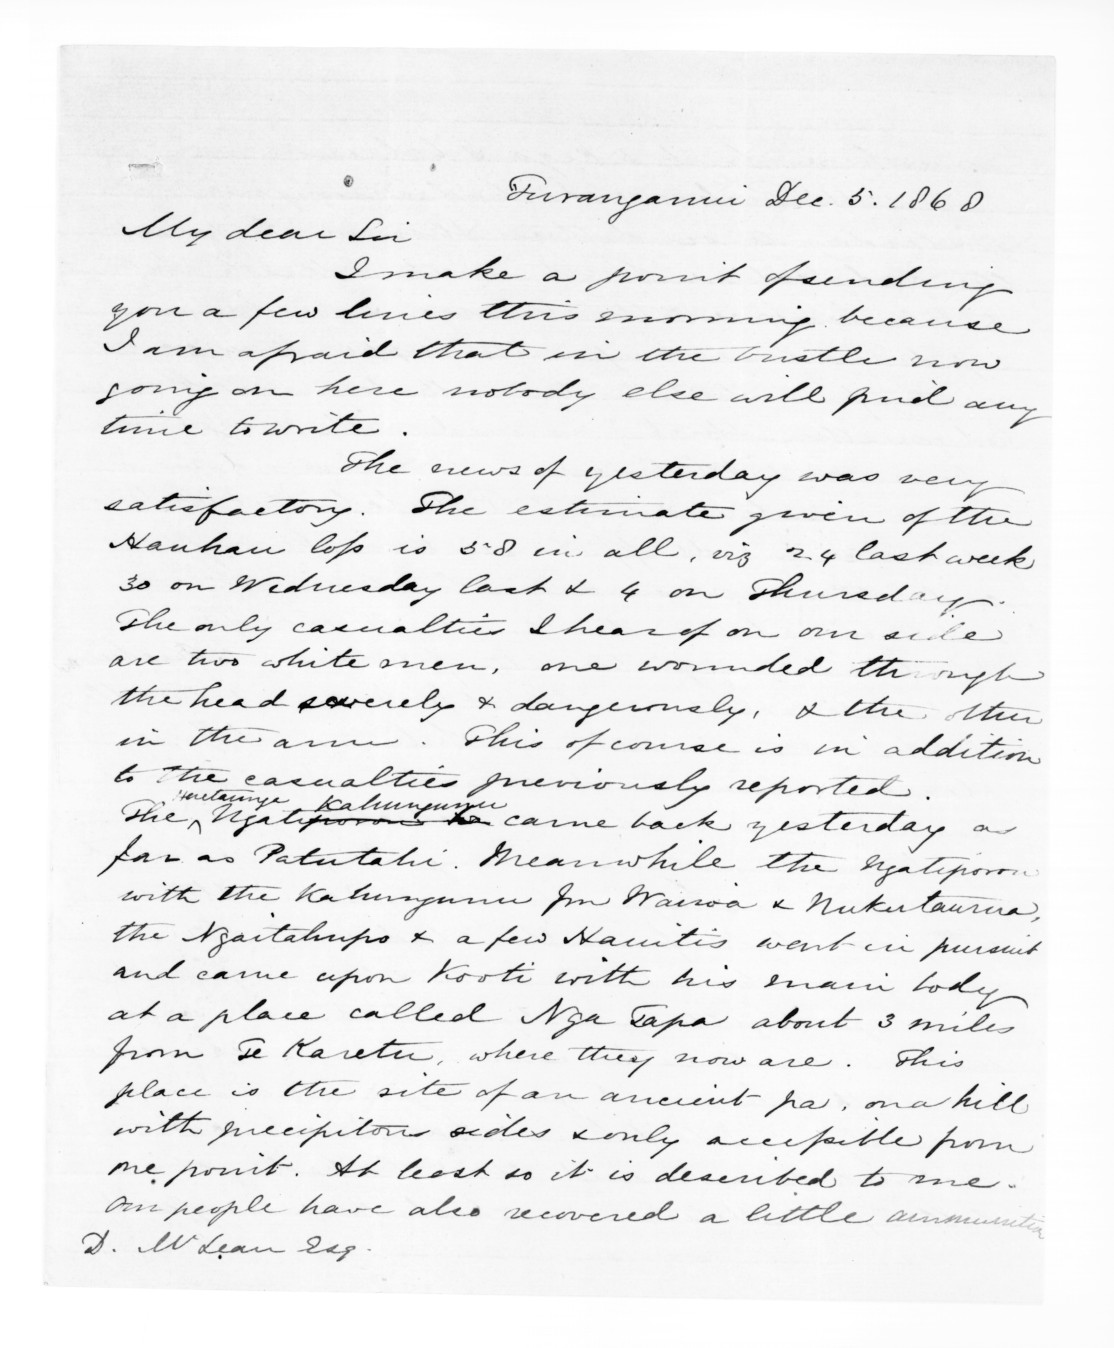 Turanganui Dec. 5. 1868
My dear Sir
I make a point of sending
you a few lines this morning because
I am afraid that in the bustle now
going on here nobody else will find any
time to write.
The news of yesterday was very
satisfactory. The estimate given of the
Hauhau loss is 58 in all, viz 24 last week
30 on Wednesday last & 4 on Thursday.
The only casualties I hear of on our side
are two white men, one wounded through
the head severely & dangerously, & the other
in the arm. This of course is in addition
to the casualties previously reported.
Heretaunga Kahungunu
The Ngatiporou came back yesterday as
far as Patutahi. Meanwhile the Ngatiporou
with the Kahungunu fm Wairoa & Nukutaurua,
the Ngaitahupo & a few Hauitis went in pursuit
and came upon Kooti with his main body
at a place called Nga Tapa about 3 miles
from Te Karetu, where they now are. This
place is the site of an ancient pa, on a hill
with precipitous sides & only accessible from
one point. At least so it is described to me.
Our people have also recovered a little ammunition
D. McLean Esq.